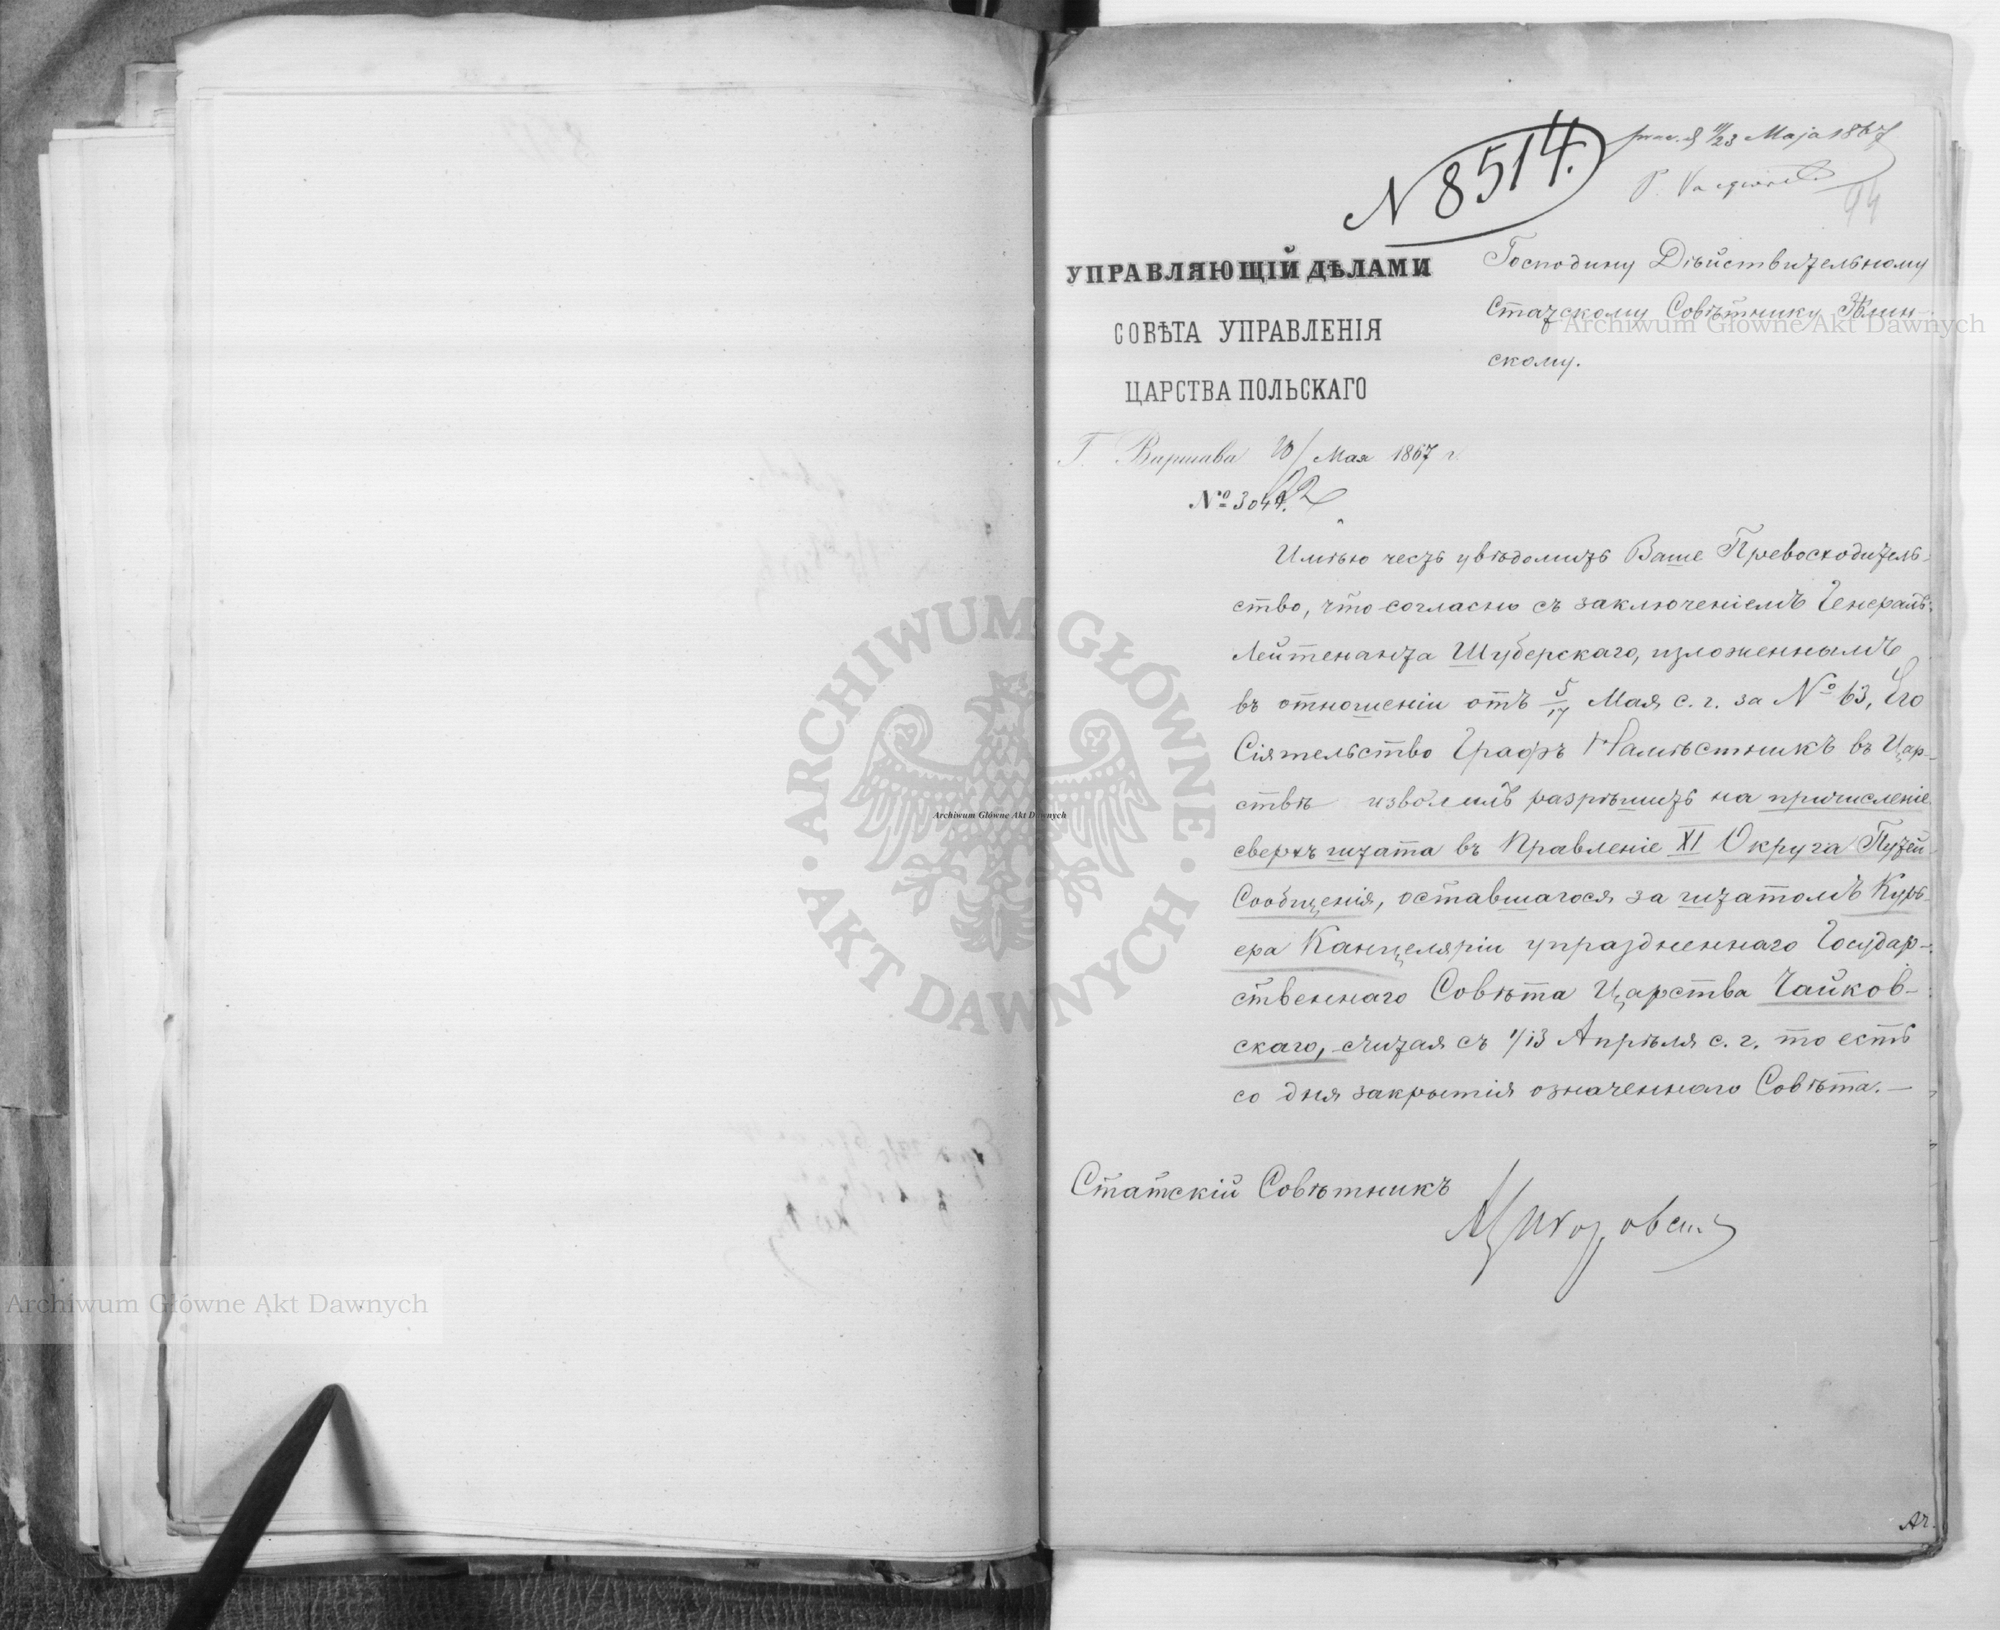 N 8514.
11/23 Maja 1867
94
УПРАВЛЯЮЩІЙ ДѢЛАМИ
СОВѢТА УПРАВЛЕНІЯ
ЦАРСТВА ПОЛЬСКАГО
Г. Варшава 10/22 Мая 1867 г.
№ 3044.
Господину Дѣйствительному
Статскому Совѣтнику Зѣлин-
скому.
Имѣю честь увѣдомить Ваше Превосходитель-
ство, что согласно съ заключеніемъ Генералъ-
Лейтенанта Шуберскаго, изложеннымъ
въ отношеніи отъ 5/17 Мая с. г. за № 63, Его
Сіятельство Графъ Намѣстникъ въ Цар-
ствѣ изволилъ разрѣшить на причисленіе
сверхъ штата въ Правленіе XI Округа Путей
Сообщенія, оставшагося за штатомъ Курь-
ера Канцеляріи упраздненнаго Государ-
ственнаго Совѣта Царства Чайков-
скаго, считая съ 1/13 Апрѣля с. г. то есть
со дня закрытія означеннаго Совѣта.—
Статскій Совѣтникъ
Archiwum Główne Akt Dawnych
Archiwum Główne Akt Dawnych
Archiwum Główne Akt Dawnych
ARCHIWUM GŁÓWNE · AKT DAWNYCH ·